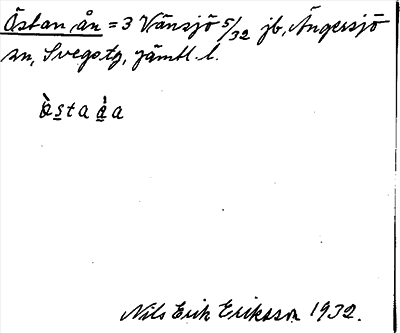 Östan ån = 3 Vänsjö 5/32 jb, Ängersjö
sn, Svegs tg, Jämtl. l.
ö̀s̲taà̲a
Nils Erik Eriksson 1932.